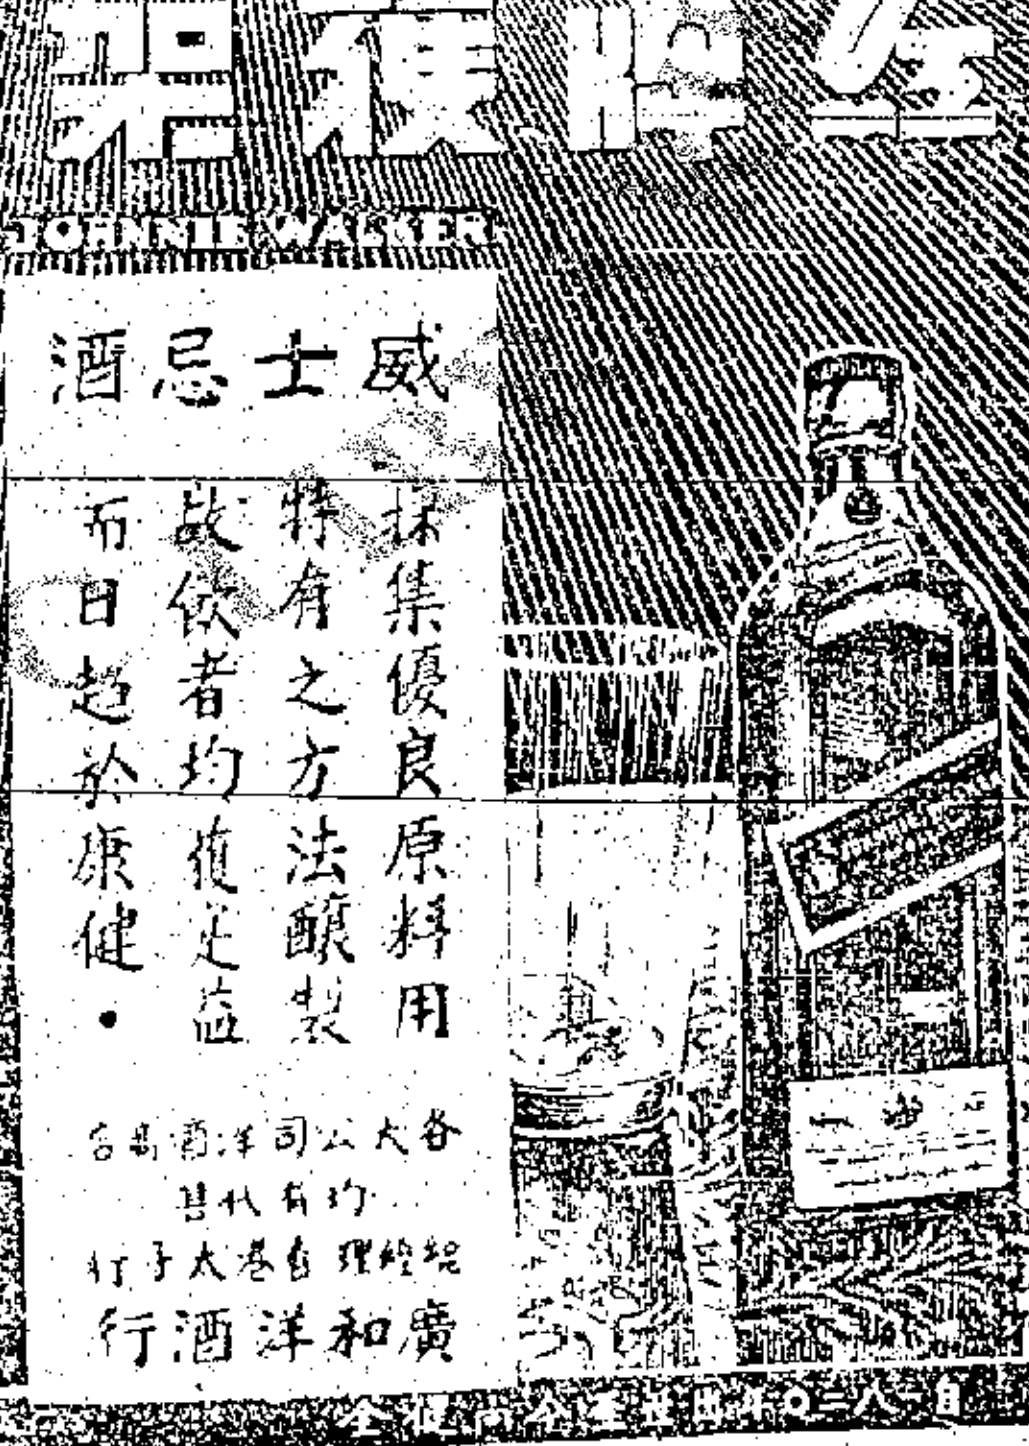 JOHNNIE WALKER
威士忌酒
採集優良原料用
特有之方法釀製
故飲者均獲足益
而日趨於康健・
各大公司洋酒
均有代售
總經理香港太子行
廣和洋酒行
自一八二〇年